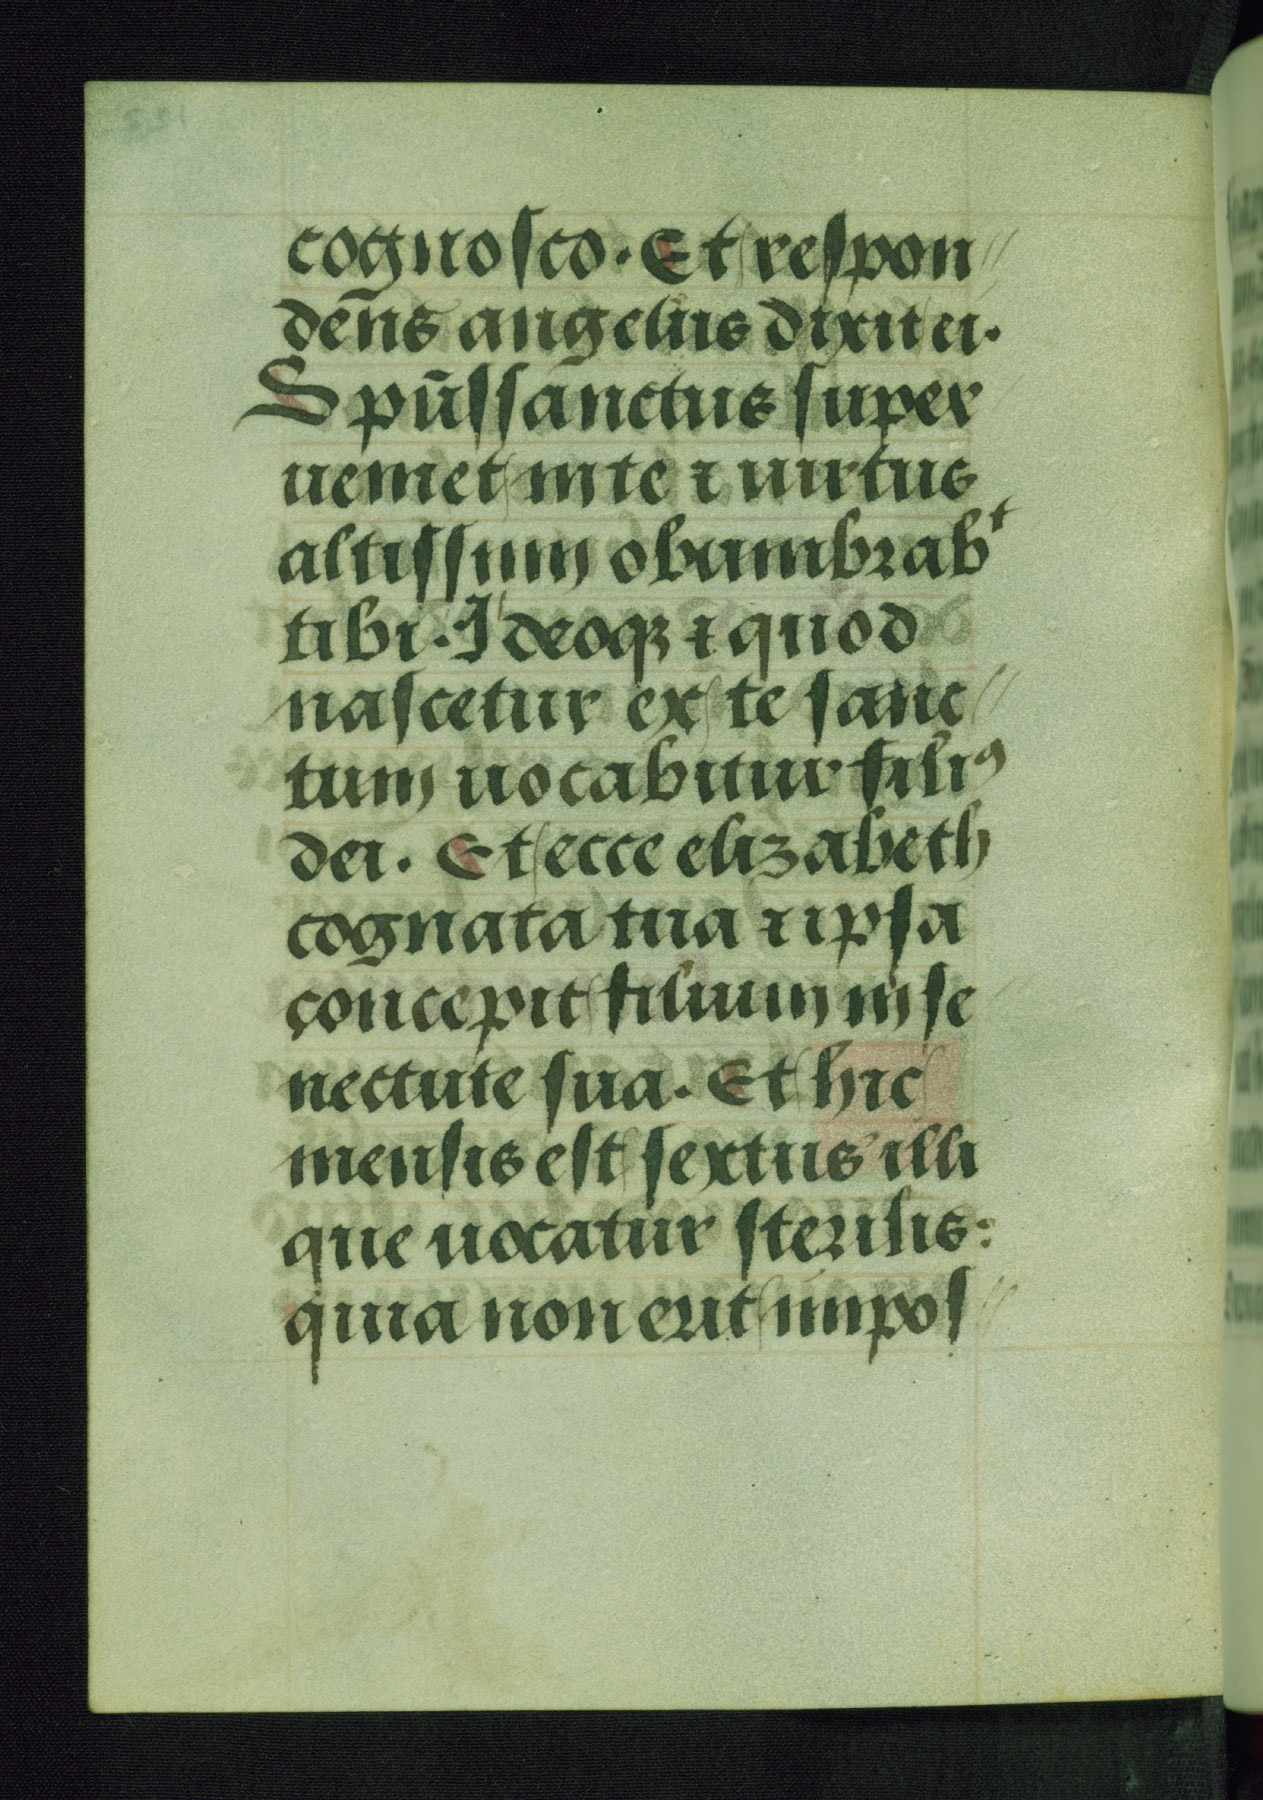 cognosco. Et respon
dēns angelus dixit ei.
Spūs sanctus super
ueniet in te ⁊ uirtus
altissimi obumbrabᵗ
tibi. Ideoqꝫ ⁊ quod
nascetur ex te sanc
tum uocabitur filiꝰ
dei. Et ecce elizabeth
cognata tua ⁊ ipsa
concepit filium in se
nectute sua. Et hic
mensis est sextus illi
que uocatur sterilis:
quia non erit impos